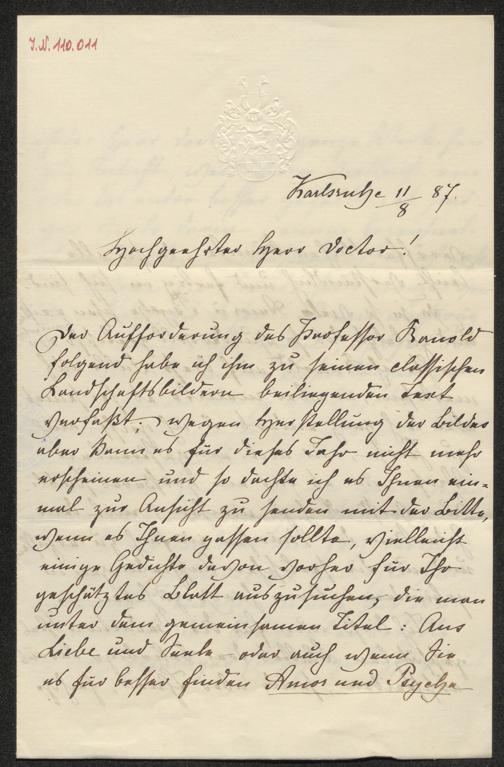 I.N. 110.011
Karlsruhe 11/8 87.
Hochgeehrter Herr Doctor!
Der Aufforderung des Professor Kanold
folgend habe ich ihm zu seinen classischen
Landschaftsbildern beiliegenden Text
verfaßt; wegen Herstellung der Bilder
aber kann es für dieses Jahr nicht mehr
erscheinen und so dachte ich es Ihnen ein-
mal zur Ansicht zu senden mit der Bitte,
wenn es Ihnen passen sollte, vielleicht
einige Gedichte davon vorher für Ihr
geschätztes Blatt auszusuchen, die man
unter dem gemeinsamen Titel: Aus
Liebe und Seele oder auch wenn Sie
es für besser finden Amor und Psyche